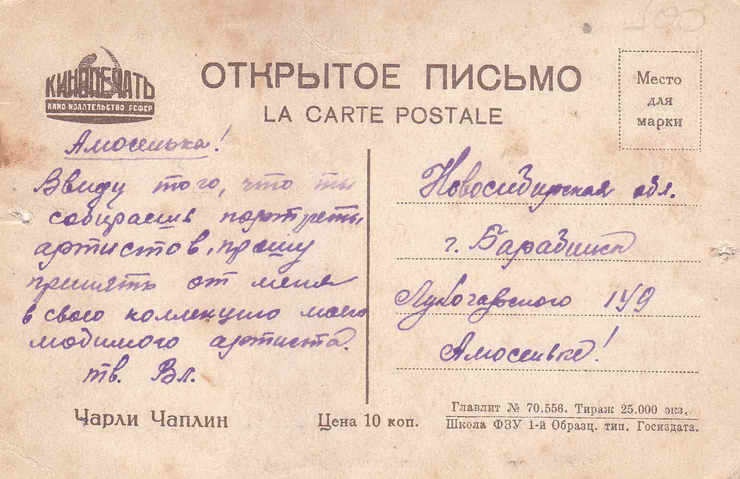 КИНОПЕЧАТЬ
КИНО ИЗДАТЕЛЬСТВО РСФСР
ОТКРЫТОЕ ПИСЬМО
LA CARTE POSTALE
Место
для
марки
Амосенька!
Ввиду того, что ты
собираешь портреты
артистов, прошу
принять от меня
в свою коллекцию моего
любимого артиста.
тв. Вл.
Новосибирская обл.
г. Барабинск
149
Амосеньке!
Чарли Чаплин
Цена 10 коп.
Главлит № 70.556. Тираж 25.000 экз.
Школа ФЗУ 1-й Образц. тип. Госиздата.